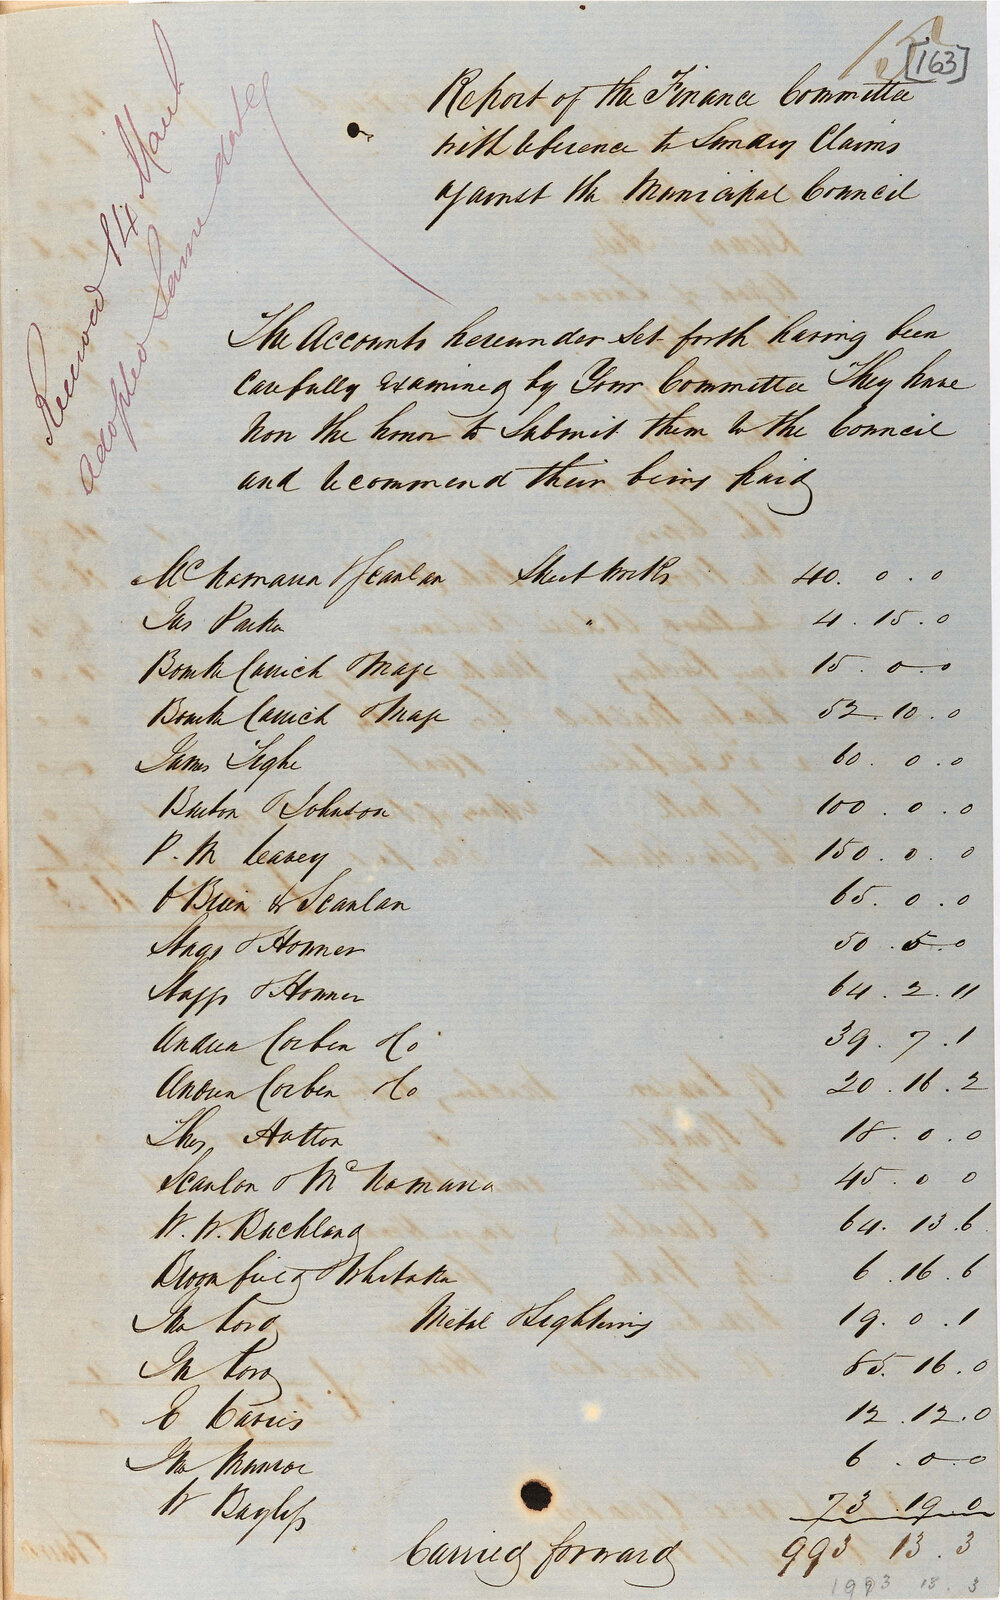 [163]
Report of the Finance Committee
with reference to Sundry Claims
against the Municipal Council
Received 14 March
adopted Same date
The Accounts hereunder Set forth having been
Carefully Examined by Your Committee They have
now the honor to Submit them to the Council
and recommend their being paid
McNamara & Scanlan Street Works 40. 0. 0
Jas Parker " 4. 15. 0
Bourk Carrick & Mage 15. 0. 0
Bourk Carrick & Mage 52. 10. 0
James Tighe 60. 0. 0
Barton & Johnson 100. 0. 0
P. M 150. 0. 0
O Brien & Scanlan 65. 0. 0
& Honner 50. 5. 0
& Honner 64. 2. 11
Andrew Corben & Co 39. 7. 1
Andrew Corben & Co 20. 16. 2
Thos Hatton 18. 0. 0
Scanlon & McNamara 45. 0 0
W. W. Buckland 64. 13. 6
Broomfield & Whitaker 6. 16. 6
Jno Metal & Lightering 19. 0. 1
85. 16. 0
E Davies 12. 12. 0
Jno Munroe 6. 0. 0
W Bayliss 73 19. 0
Carried forward 993 13. 3
1993 13. 3